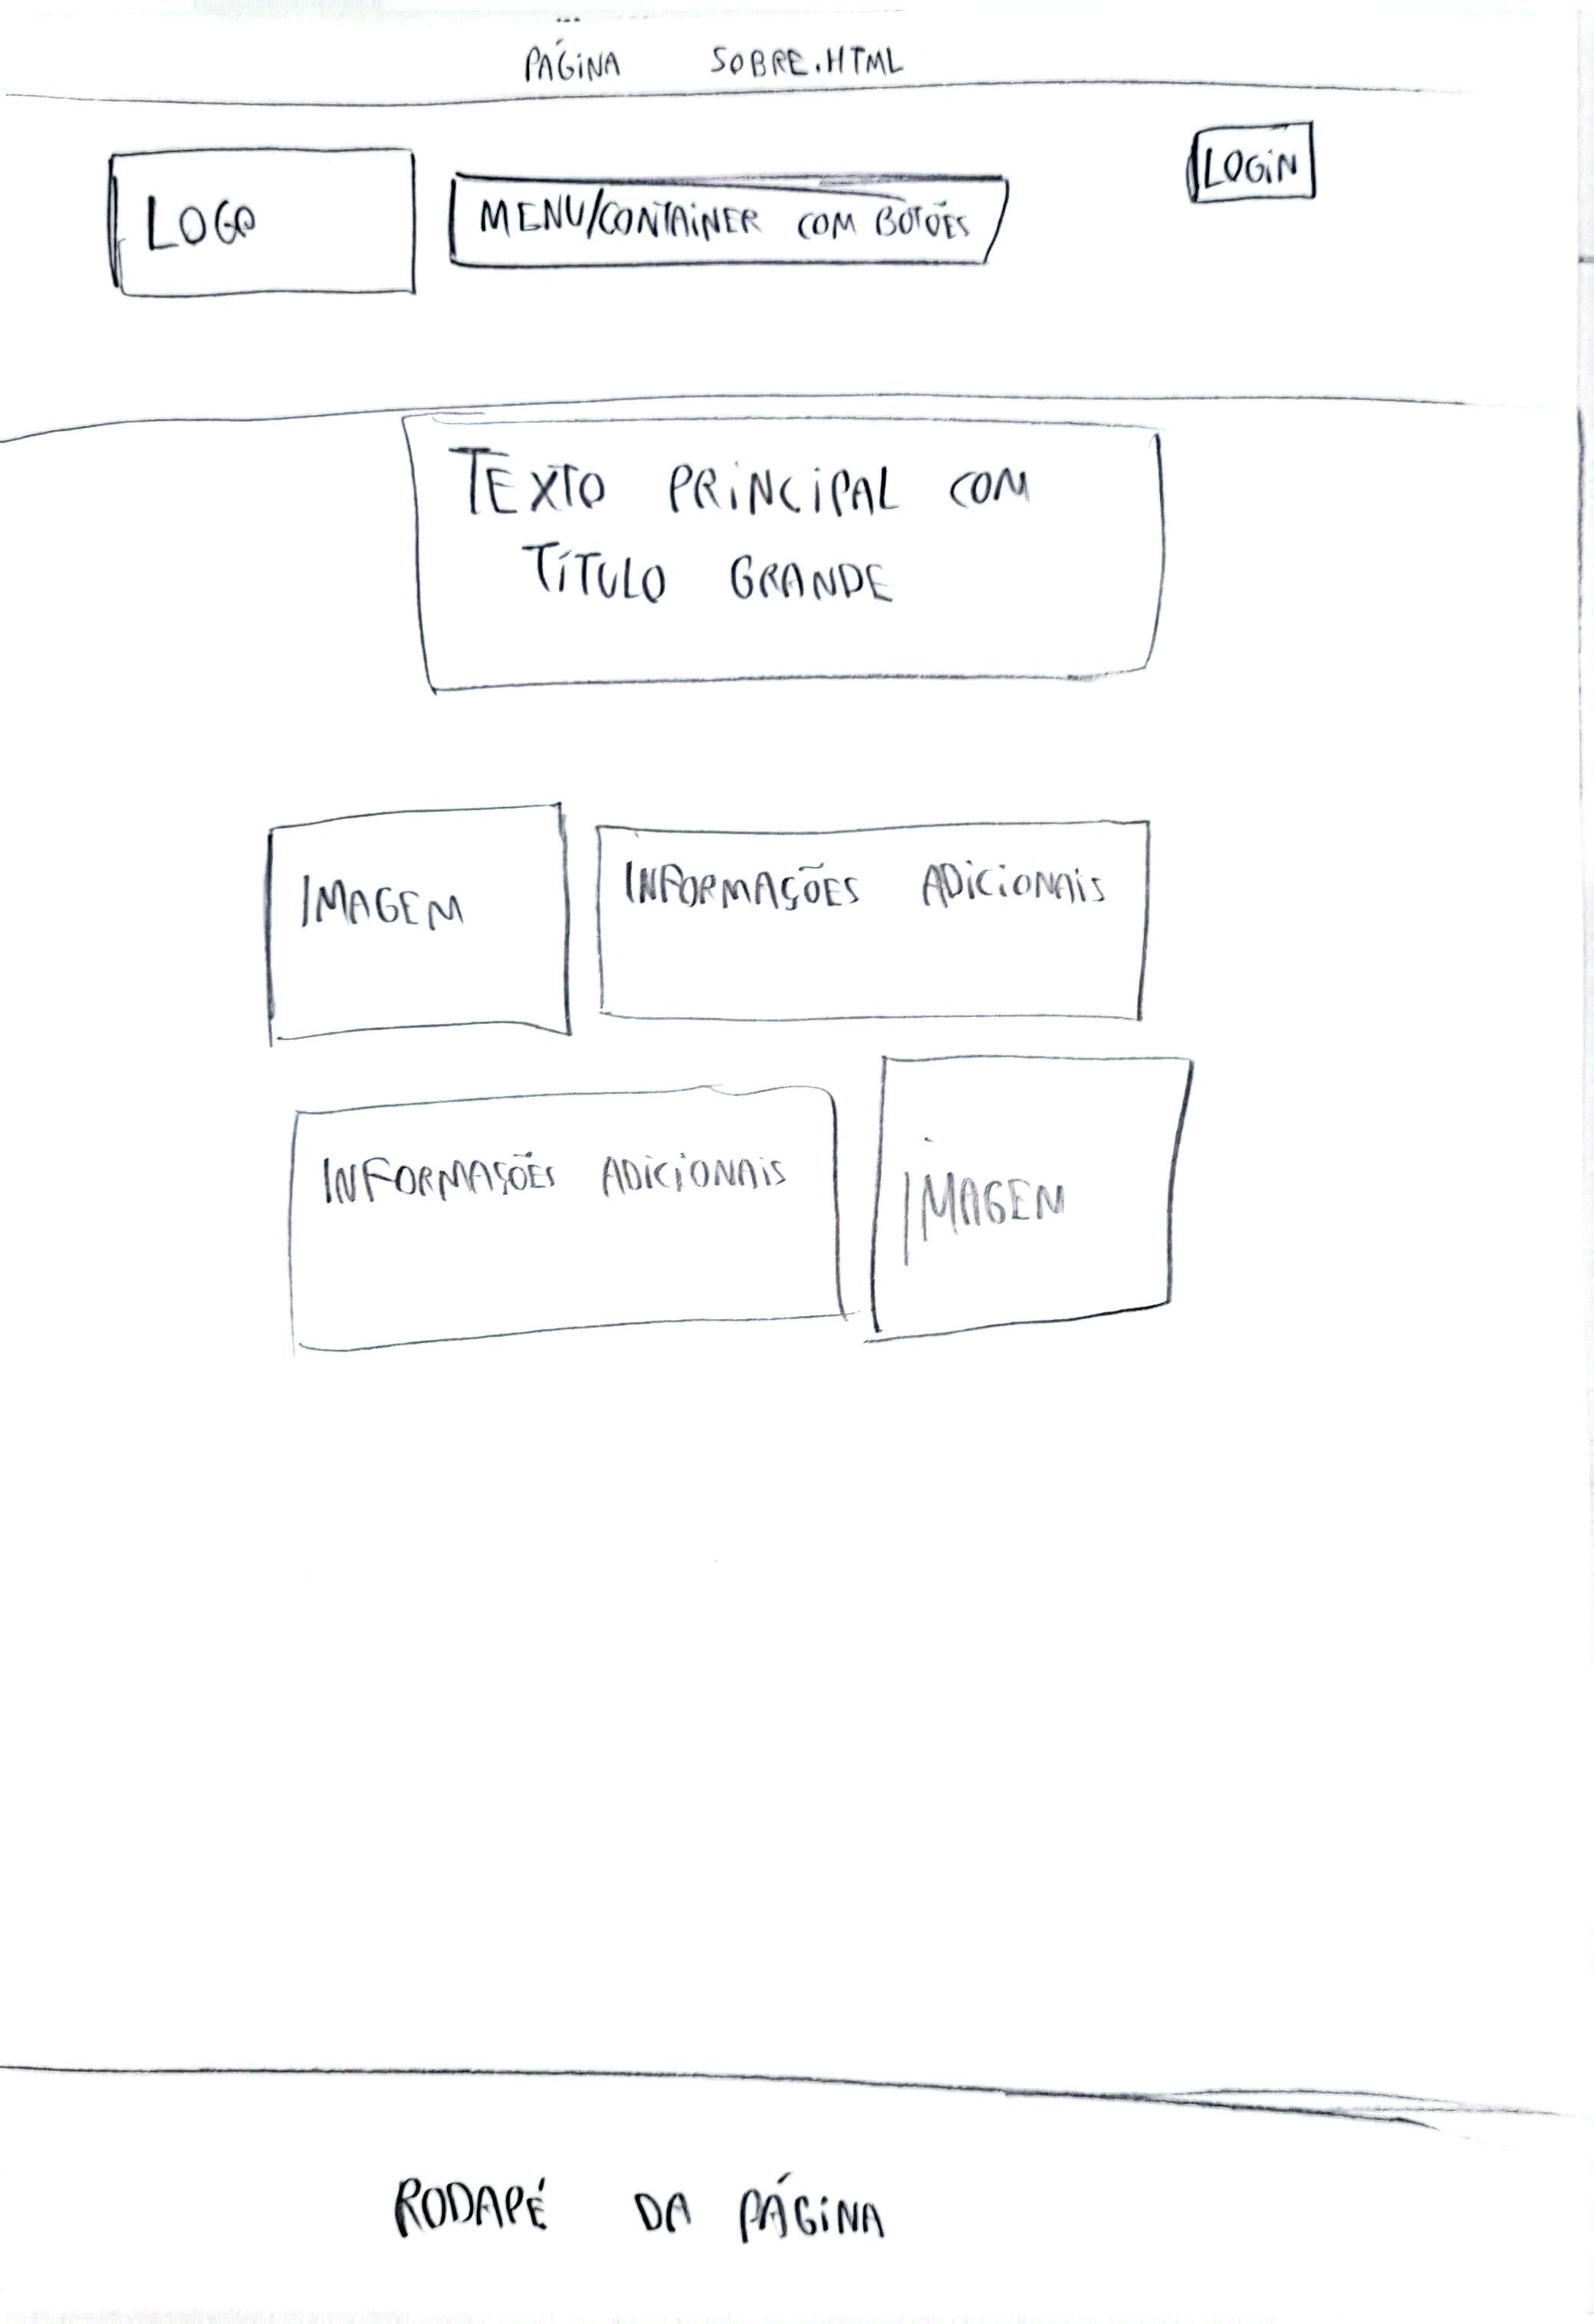 PÁGINA SOBRE.HTML
LOGO
MENU/CONTAINER COM BOTÕES
LOGIN
TEXTO PRINCIPAL COM
TÍTULO GRANDE
IMAGEM
INFORMAÇÕES ADICIONAIS
INFORMAÇÕES ADICIONAIS
IMAGEM
RODAPÉ DA PÁGINA